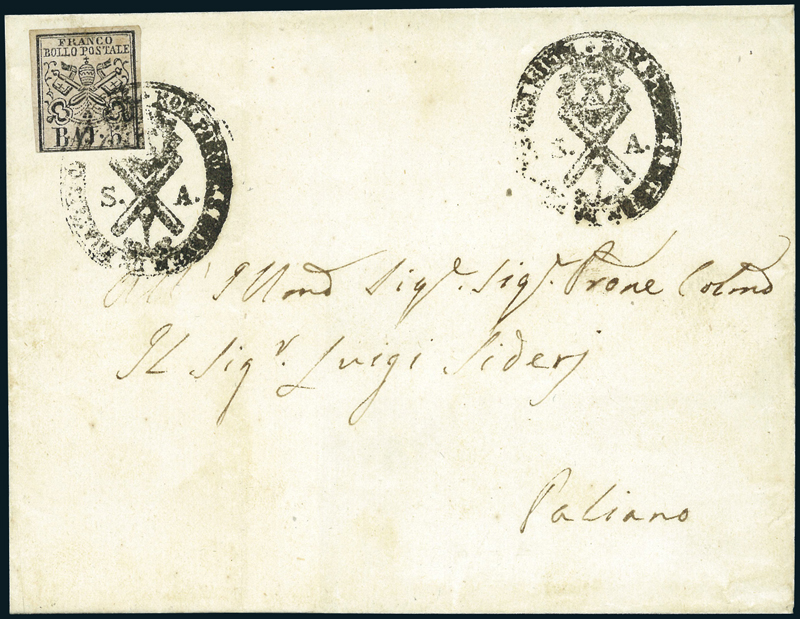 FRANCO
BOLLO POSTALE
BAJ.
S. A.
S. A.
All' Illmo Sigr. Sigr. Prone Colmo
Il Sigr. Luigi Siderj
Paliano